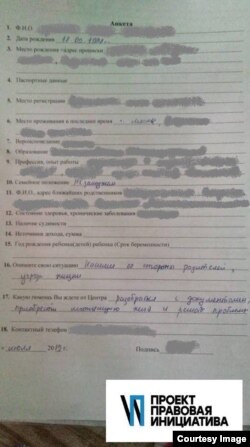 Анкета
1. Ф.И.О.
2. Дата рождения
3. Место рождения - адрес прописки
4. Паспортные данные
5. Место регистрации
6. Место проживания в последнее время
7. Вероисповедание
8. Образование
9. Профессия, опыт работы
10. Семейное положение не замужем
11. Ф.И.О, адрес ближайших родственников
12. Состояние здоровья, хронические заболевания
13. Наличие судимости
14. Источники дохода, сумма
15. Год рождения ребенка(детей) ребенка (Срок беременности)
16. Опишите свою ситуацию со стороны родителей,
угроза жизни
17. Какую помощь Вы ждете от Центра разобраться с документами,
приобрести и решать проблемы
18. Контактный телефон
июля Подпись
ПРОЕКТ
ПРАВОВАЯ
ИНИЦИАТИВА
Courtesy Image